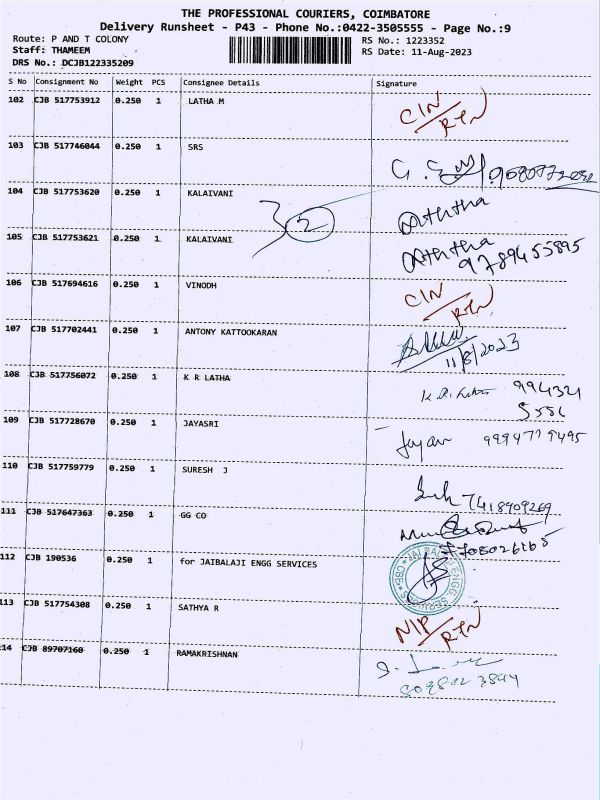 THE PROFESSIONAL COURIERS, COIMBATORE
Delivery Runsheet - P43 - Phone No.:0422-3505555 - Page No.:9
Route: P AND T COLONY RS No.: 1223352
Staff: THAMEEM RS Date: 11-Aug-2023
DRS No.: DCJB122335209
S No Consignment No Weight PCS Consignee Details Signature
102 CJB 517753912 0.250 1 LATHA M CIN/RTN
103 CJB 517746044 0.250 1 SRS
104 CJB 517753620 0.250 1 KALAIVANI
2
105 CJB 517753621 0.250 1 KALAIVANI 9789455895
106 CJB 517694616 0.250 1 VINODH CIN/RTN
107 CJB 517702441 0.250 1 ANTONY KATTOOKARAN
11/8/2023
108 CJB 517756072 0.250 1 K R LATHA 994321
109 CJB 517728670 0.250 1 JAYASRI
110 CJB 517759779 0.250 1 SURESH J 7418909269
111 CJB 517647363 0.250 1 GG CO
112 CJB 190536 0.250 1 for JAIBALAJI ENGG SERVICES
113 CJB 517754308 0.250 1 SATHYA R NIP/RTN
14 CJB 89707160 0.250 1 RAMAKRISHNAN